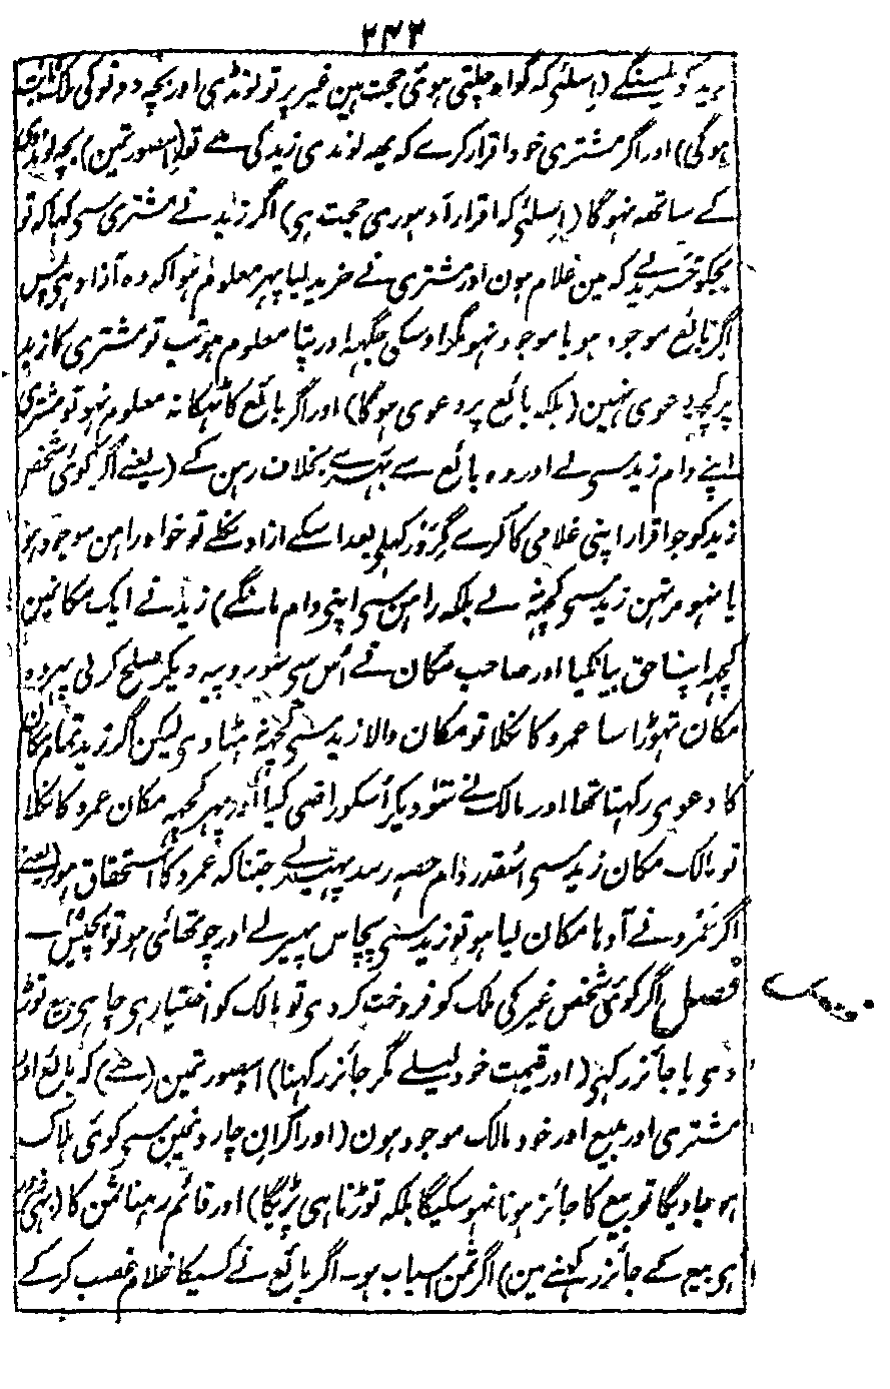 ۲۴۳
زید کو ملینگے (اسلئی کہ گواہ چلتی ہوئی حجت ہین غیر پر تو لونڈی اور بچہ دونو کی ملک ثابت
ہوگی) اور اگر مشتری خود اقرار کرے کہ یہہ لونڈی زید کی ہے تو (اسصورتمین) بچہ لونڈی
کے ساتھہ نہوگا (اسلئی کہ اقرار آدہوری حجت ہی) اگر زید نے مشتری سی کہا کہ تو
مجکو خرید لے کہ مین غلام ہون اور مشتری نے خرید لیا پہر معلوم ہوا کہ وہ آزاد ہی پس
اگر بائع موجود ہو یا موجود نہو مگر اوسکی جگہہ اور پتا معلوم ہو تب تو مشتری کا زید
پر کچہہ دعوی نہین (بلکہ بائع پر دعوی ہوگا) اور اگر بائع کا ٹہکانہ معلوم نہو تو مشتری
اپنے دام زید سی لے اور وہ بائع سے بہرے بخلاف رہن کے (یعنے اگر کوئی شخص
زید کو جو اقرار اپنی غلامی کا کرے گرو رکہلے بعد اسکے ازاد نکلے تو خواہ راہن موجود ہو
یا نہو مرتہن زید سی کچہہ نہ لے بلکہ راہن سی اپنی دام مانگے) زید نے ایک مکانمین
کچہہ اپنا حق بیانکیا اور صاحب مکان نے اُس سی سو روپیہ دیکر صلح کر لی پہر وہ
مکان تہوڑا سا عمرو کا نکلا تو مکان والا زید سی کچہہ نہ ہٹا وی لیکن اگر زید تمام مکان
کا دعوی رکہتا تہا اور مالک نے سو دیکر اُسکو راضی کیا اور پہر کچہہ مکان عمرو کا نکلا
تو مالک مکان زید سی اسقدر دام حصہ رسد پہیر لے جتنا کہ عمرو کا استحقاق ہو (یعنے
اگر عمرو نے آدہا مکان لیا ہو تو زید سی پچاس پہیر لے اور چوتہائی ہو تو پچیس
فصل اگر کوئی شخص غیر کی ملک کو فروخت کر دی تو مالک کو اختیار ہی چاہی بیع توڑ
دی یا جائز رکہی (اور قیمت خود لیلے مگر جائز رکہنا) اسصورتمین (ہے) کہ بائع اور
مشتری اور مبیع اور خود مالک موجود ہون (اور اگر ان چارونمین سی کوئی ہلاک
ہو جاویگا تو بیع کا جائز ہونا نہو سکیگا بلکہ توڑنا ہی پڑیگا) اور قائم رہنا ثمن کا (بہی
ہی بیع کے جائز رکہنے مین) اگر ثمن اسباب ہو۔ اگر بائع نے کسیکا غلام غصب کر کے